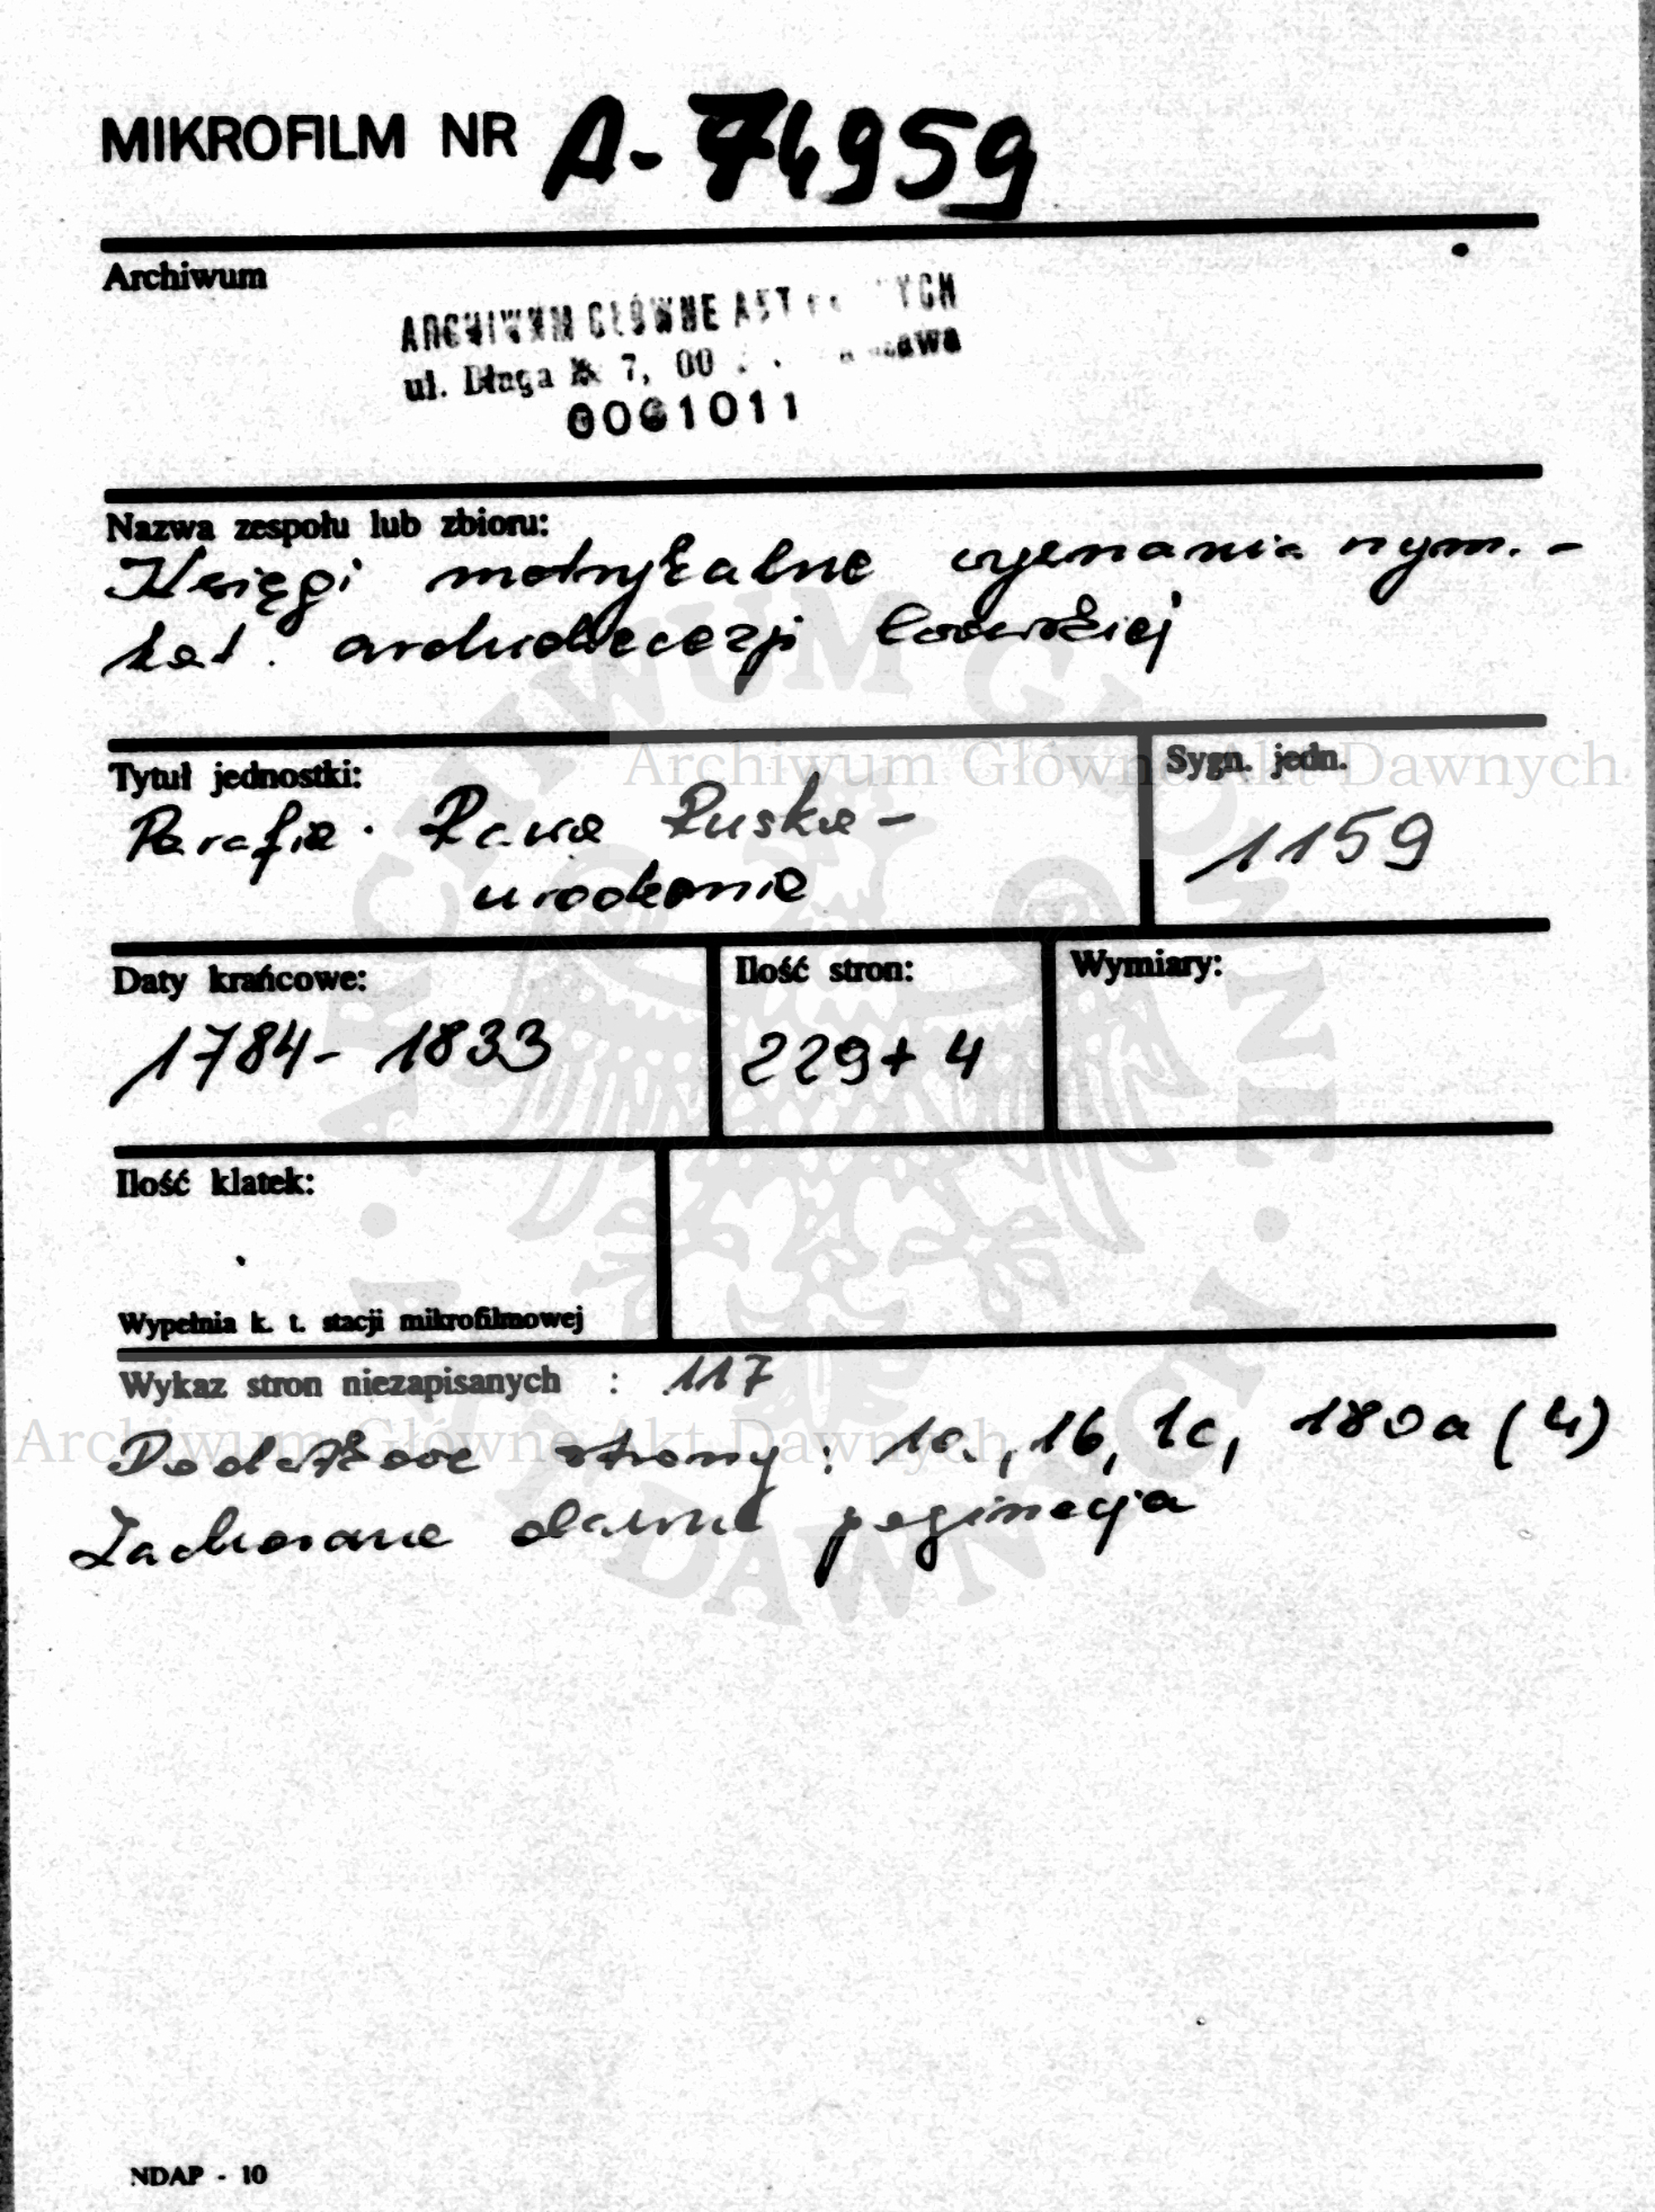 MIKROFILM NR A-74959
Archiwum
ARCHIWUM GŁÓWNE AKT YCH
ul. Długa 7, 00
0061011
Nazwa zespołu lub zbioru:
Księgi metrykalne wyznania rzym. -
kat. archidiecezji lwowskiej
Tytuł jednostki:
Parafia Rawa Ruska -
urodzenia
Sygn. jedn.
1159
Daty krańcowe:
1784 - 1833
Ilość stron:
229 + 4
Wymiary:
Ilość klatek:
Wypełnia k. t. stacji mikrofilmowej
Wykaz stron niezapisanych : 117
Dodatkowe strony : 1a, 1b, 1c, 180a (4)
Zachowane dawna paginacja
NDAP - 10
Archiwum Główne Akt Dawnych
Archiwum Główne Akt Dawnych
ARCHIWUM GŁÓWNE AKT DAWNYCH